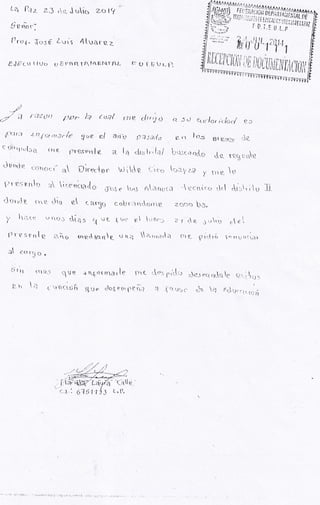 La Paz 23 de Julio 2014
Señor:
Prof. José Luis Alvarez
EJECUTIVO DEPARTAMENTAL F.D.T.E.U.L.P.
FEDERACION DEPARTAMENTAL DE
F.D.T.E.U.L.P
RECEPCIÓN DE DOCUMENTACIÓN
La razon por la cual me dirijo a su autoridad es
para informarle que el año pasado en los meses de
compulsa me presente a la distrital buscando de regente
donde conoci al Director Wilde Ciro Loayza y me lo
presento al licenciado Jose Luis Mamca tecnico del distrito II
donde me dio el cargo cobrandome 2000 bs.
y hace unos dias que fue el lunes 21 de julio del
presente año mediante una llamada me pidio renunciar
al cargo.
Sin mas que informarle me despido deseandole exitos
en la función que desempeña a favor de la educación
Laura Calle
C.I: 6751133 L.P.